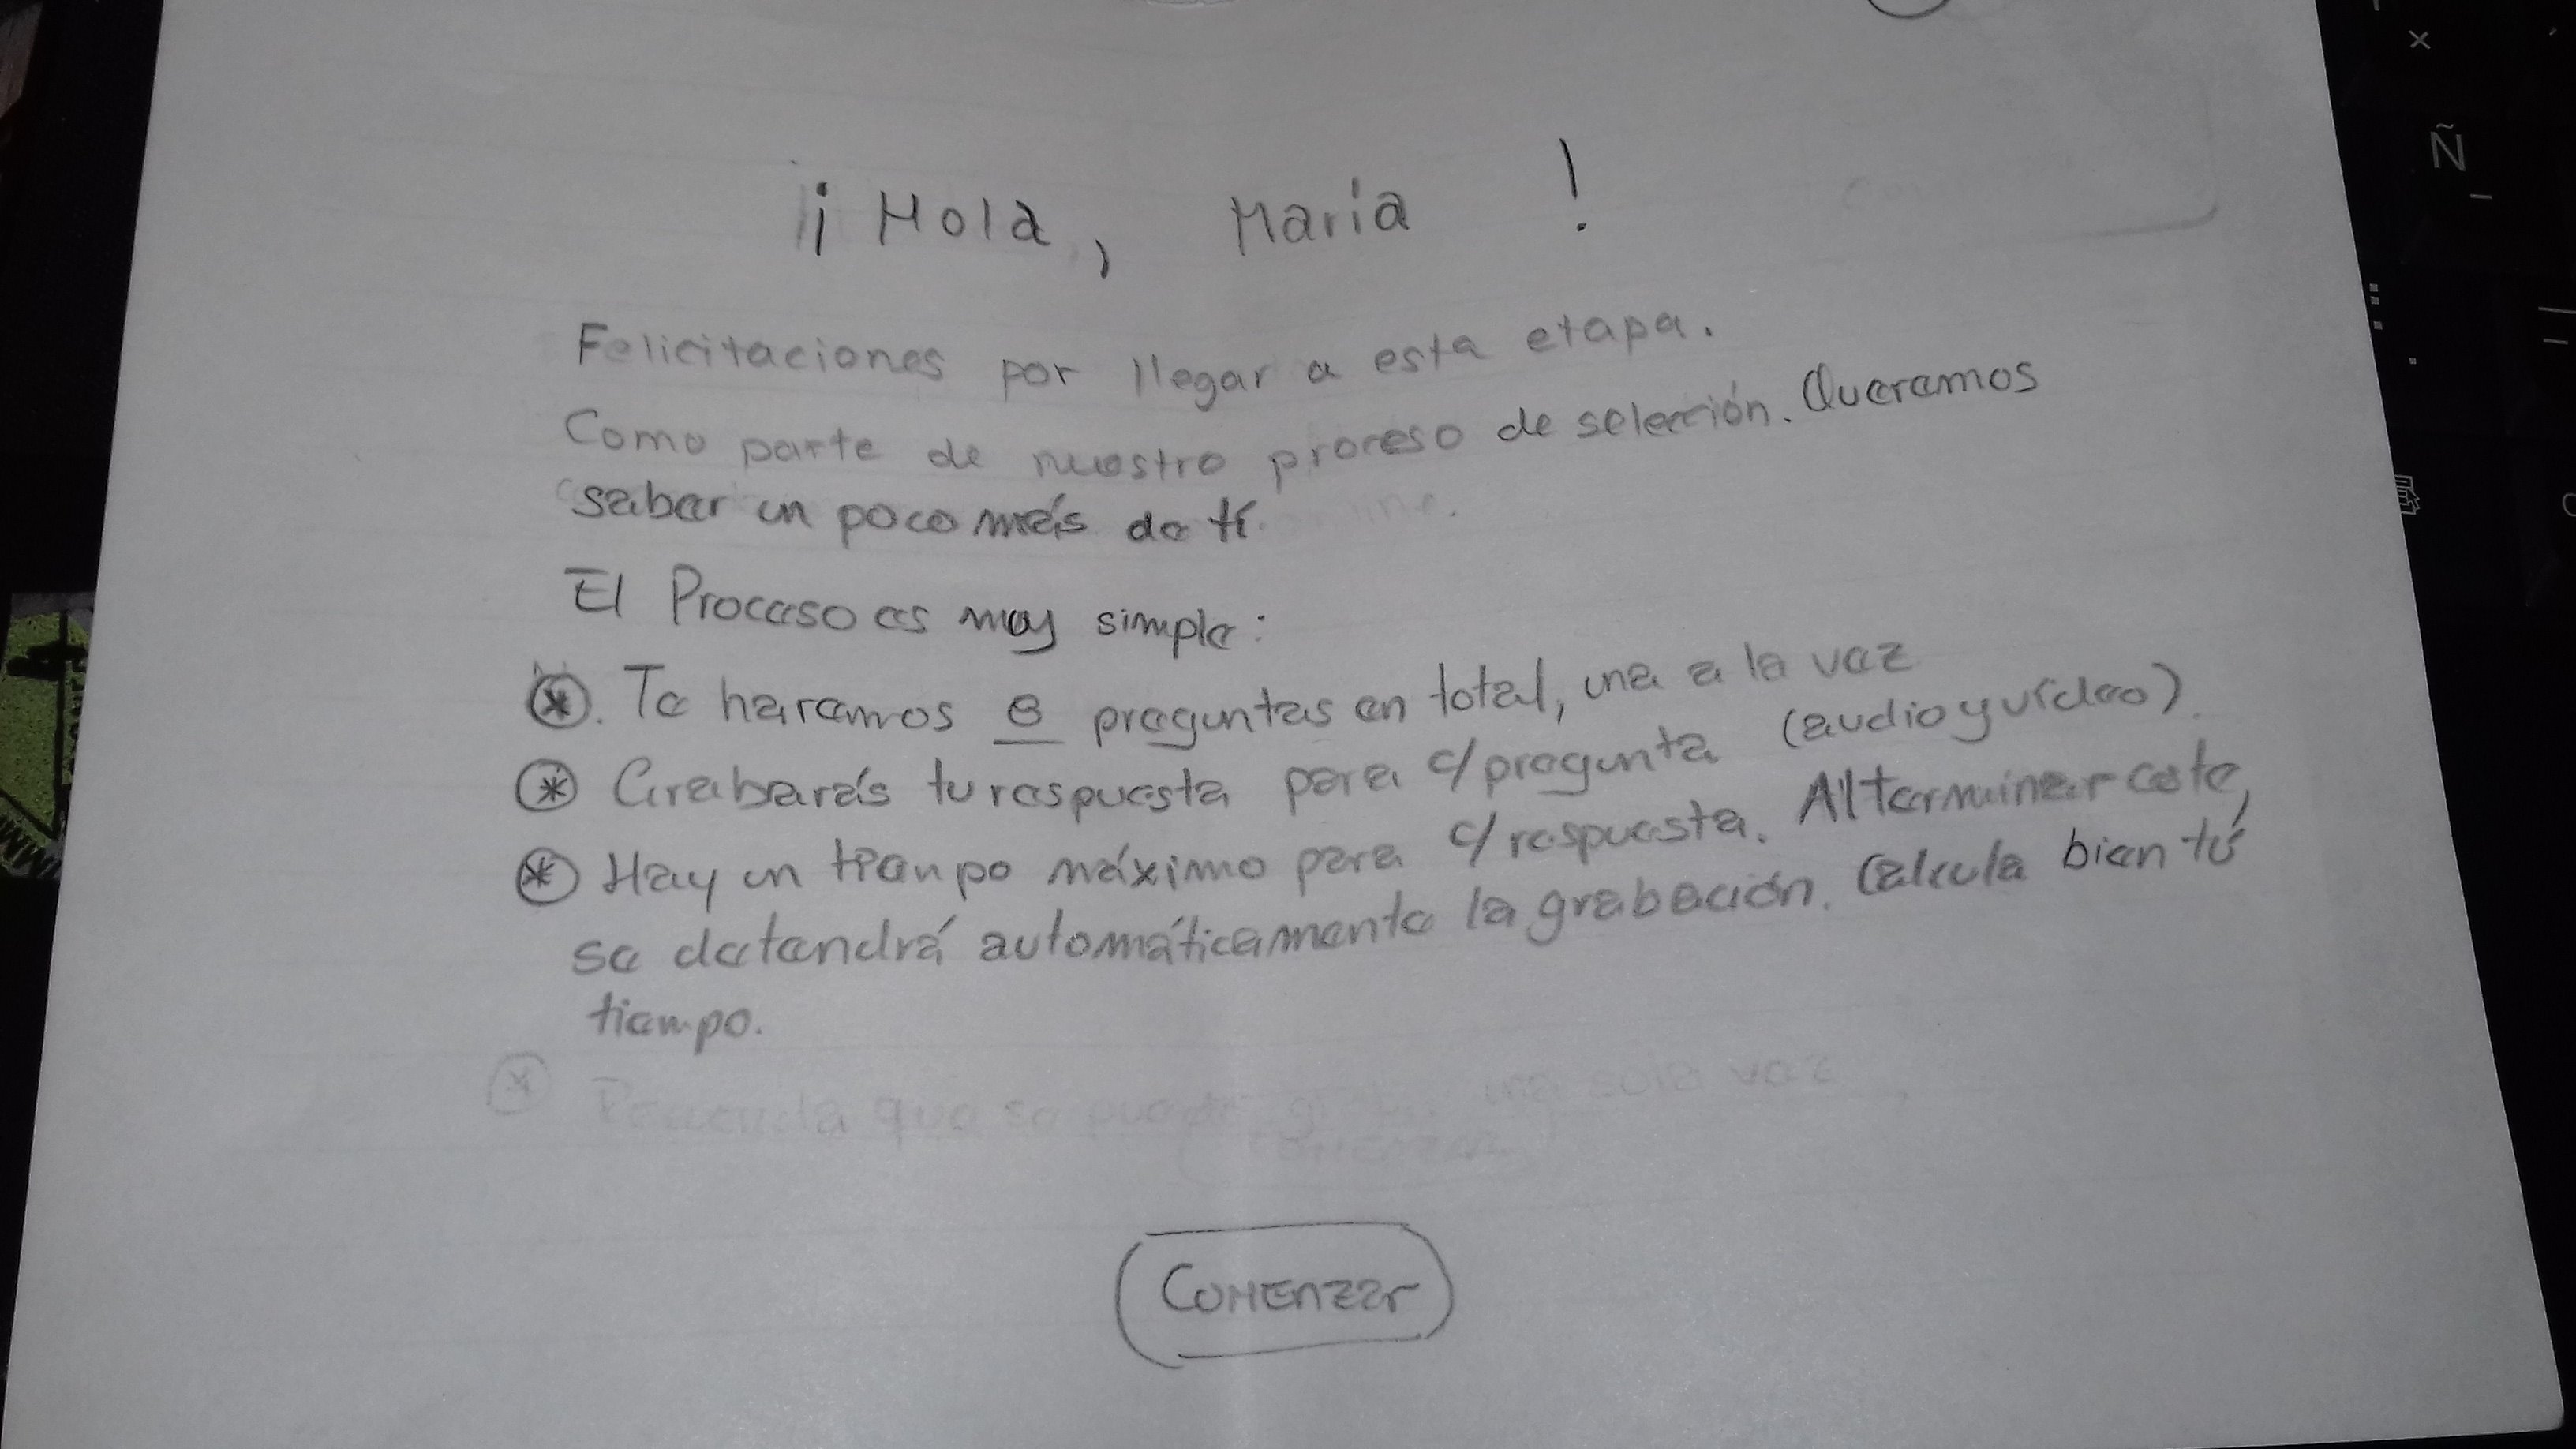 ¡Hola, María!
Felicitaciones por llegar a esta etapa.
Como parte de nuestro proceso de selección. Queremos
saber un poco más de tí.
El Proceso es muy simple:
* . Te haremos 8 preguntas en total, una a la vez
* Grabarás tu respuesta para c/pregunta (audio y vídeo).
* Hay un tiempo máximo para c/respuesta. Al terminar este,
se detendrá automáticamente la grabación. Calcula bien tú
tiempo.
* que se puede una sola vez
Comenzar
COMENZAR
Ñ